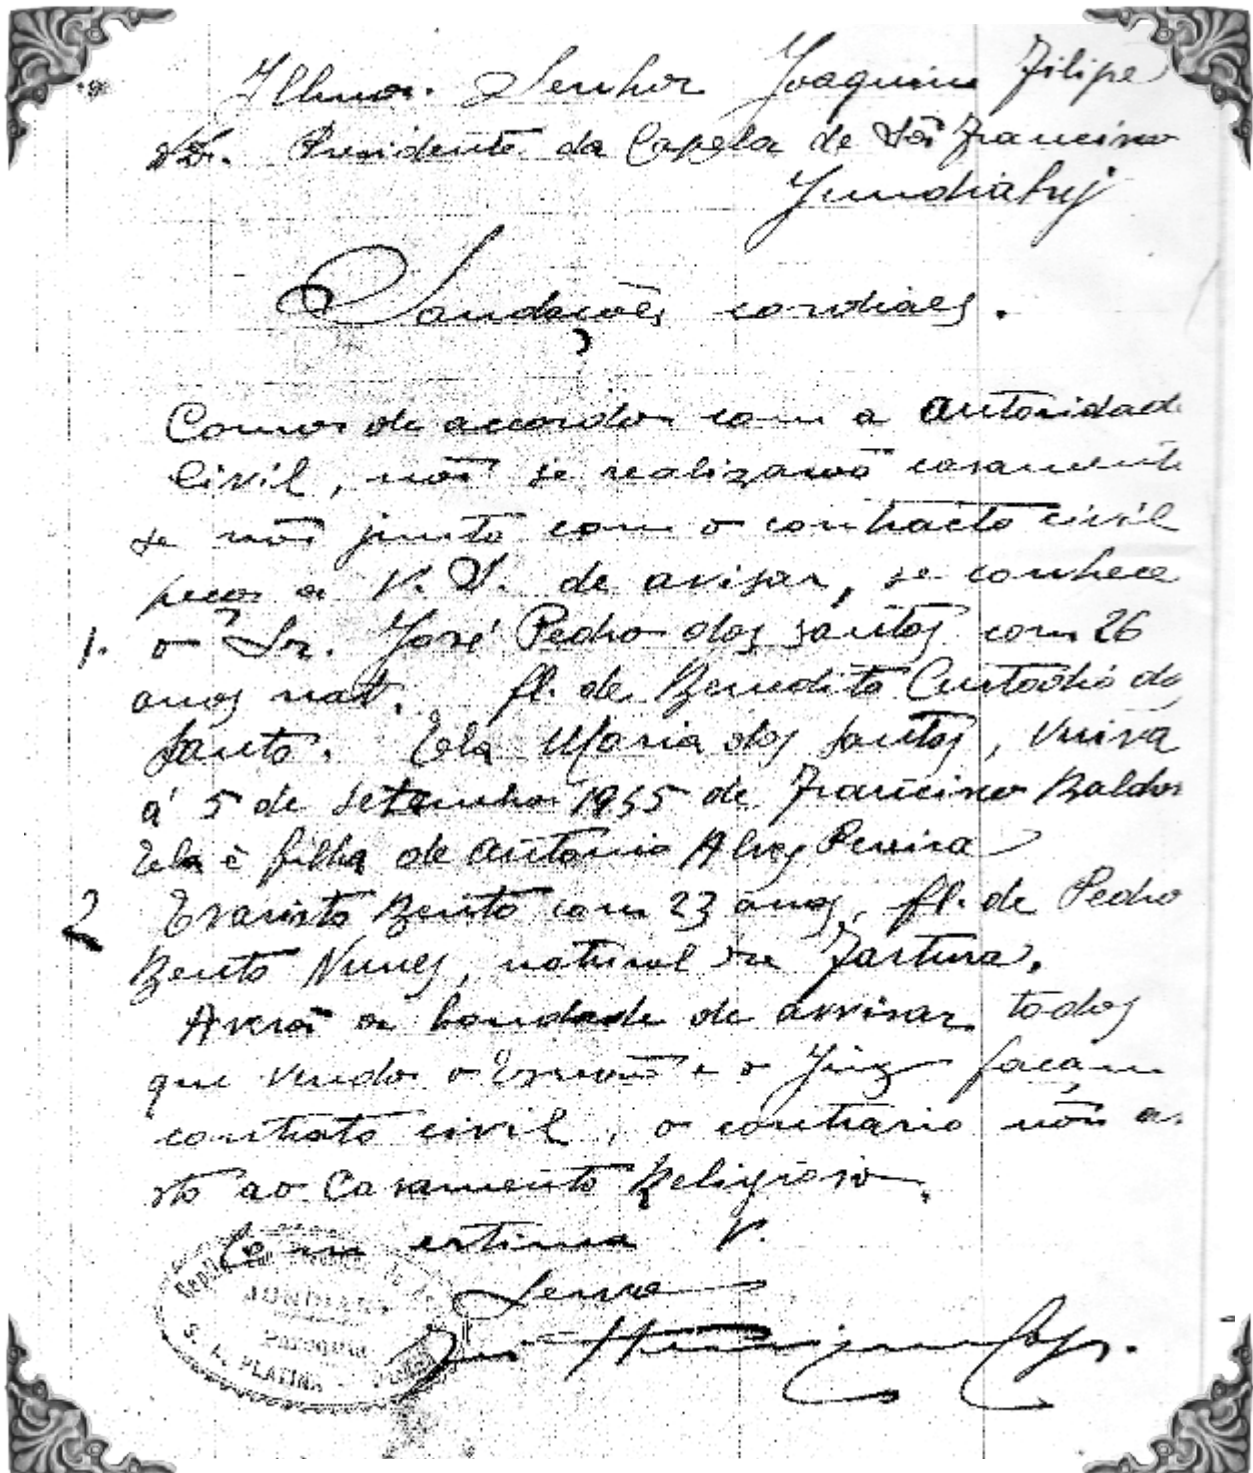 Illmo. Senhor Joaquim Filipe
DD. Presidente da Capela de São Francisco
Jundiahy
Saudações cordiaes.
Como de accordo com a autoridade
Civil, não se realizarão casamento
se não junto com o contracto civil
peço a V. S. de avisar, se conhece
1. o Sr. José Pedro dos santos com 26
anos nat. fl. de Benedito Custodio do
Santo. Ela Maria dos santos, viuva
á 5 de setembro 1955 de Francisco Baldo
Ela è filha de Antonio Alves Pereira
2 Evaristo Bento com 23 anos, fl. de Pedro
Bento Nunes, natural de Fartura.
Averá a bondade de avvisar todos
que vendo o Escrivão e o Juiz façam
contrato civil, o contrario não a
sto ao Casamento Religioso.
Com estima V.
Servo
S. A. PLATINA